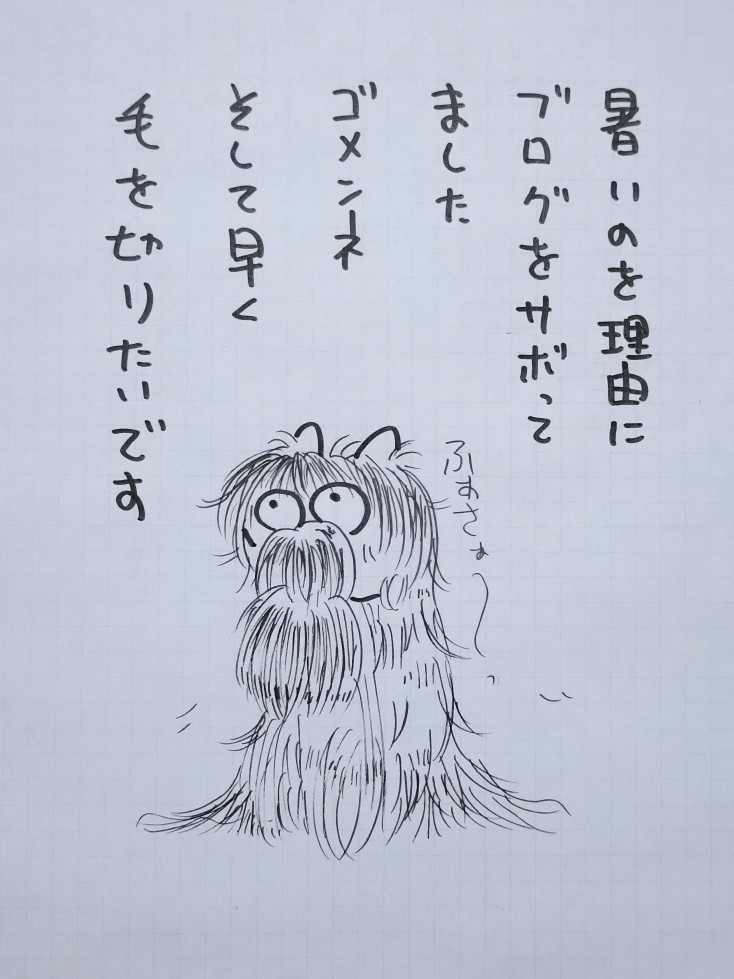 暑いのを理由に
ブログをサボって
ました
ゴメンネ
そして早く
毛を切りたいです
ふぁさぁ〜